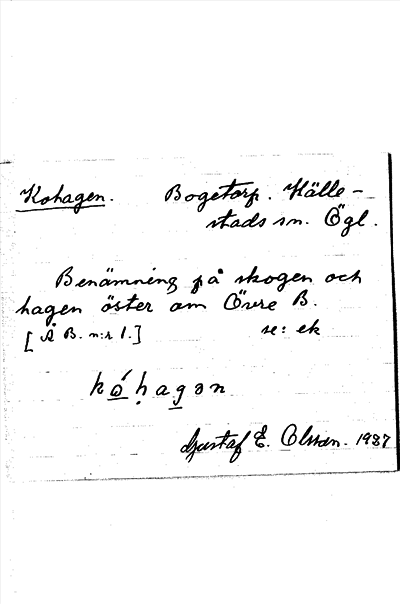 Kohagen. Bogetorp. Hälle-
stads sn. Ögl.
Benämning på skogen och
hagen öster om Övre B.
[Å B. n:r 1.] se: ek
kó̲ḥaga̲n
Gustaf E. Olsson. 1937